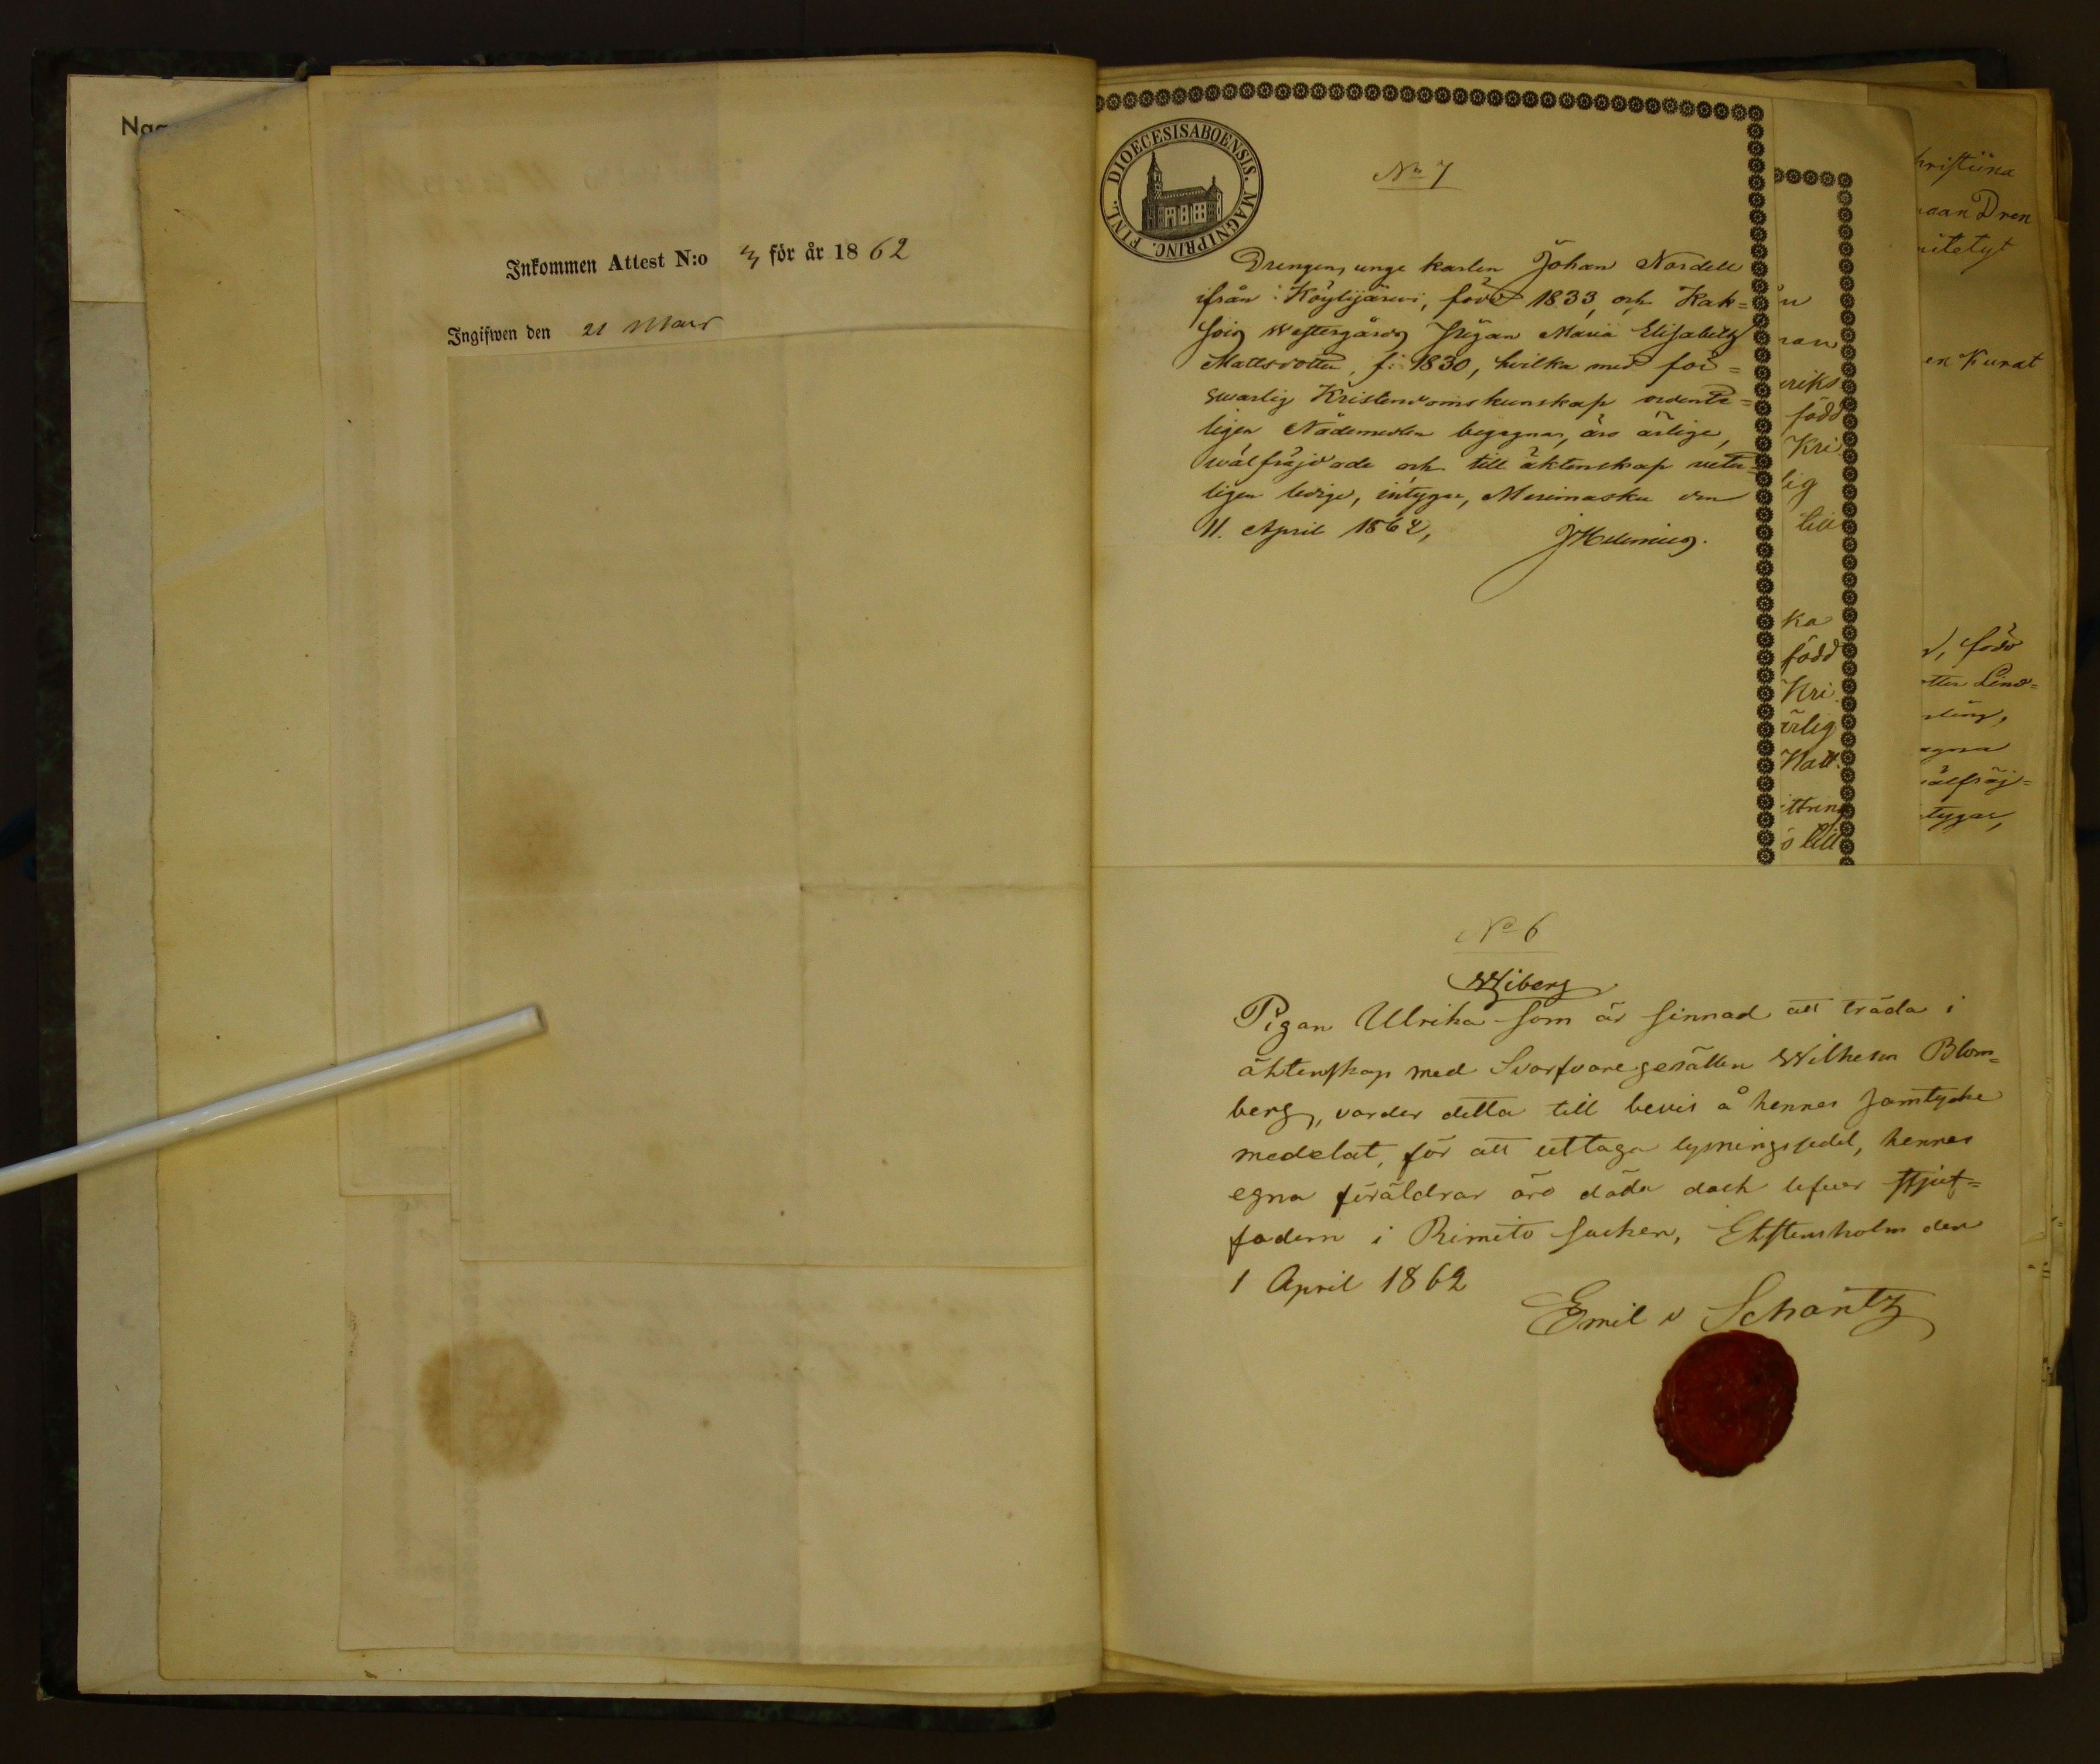 Inkommen Attest N:o 3 för år 1862
Ingifwen den 21 Mars
DIOECESISABOENSIS. MAGNIPRINC. FINL.
No 7
Drengen, unge karlen Johan Nordell
ifrån Köylijärwi, född 1833, och Kak=
Westergårds Pigan Maria Elisabeth
Mattsdotter, f: 1830, hvilka med för=
swarlig Kristendomskunskap ordente=
ligen Nådemedlen begagna, äro ärlige,
wälfräjdade och till äktenskap veter=
ligen ledige, intygar, Merimasku den
11. April 1862,
JHelenius.
No 6
Wiberg
Pigan Ulrika som är sinnad att träda i
äktenskap med Svarfvaregesällen Wilhelm Blom=
berg, varder detta till bevis å hennes samtycke
medelat, för att uttaga lysningssedel, hennes
egna föräldrar äro döda doch lefver stjuf=
fadern i Rimito Socken, Ekstensholm den
1 April 1862
Emil v Schantz
hristiina
aan Dren
en Kunat
riks
född
Kri
lig
till
ka
född
Kri
ärlig
Natt
ittring
s till
, född
tter Lind=
älfräj=
tygar,